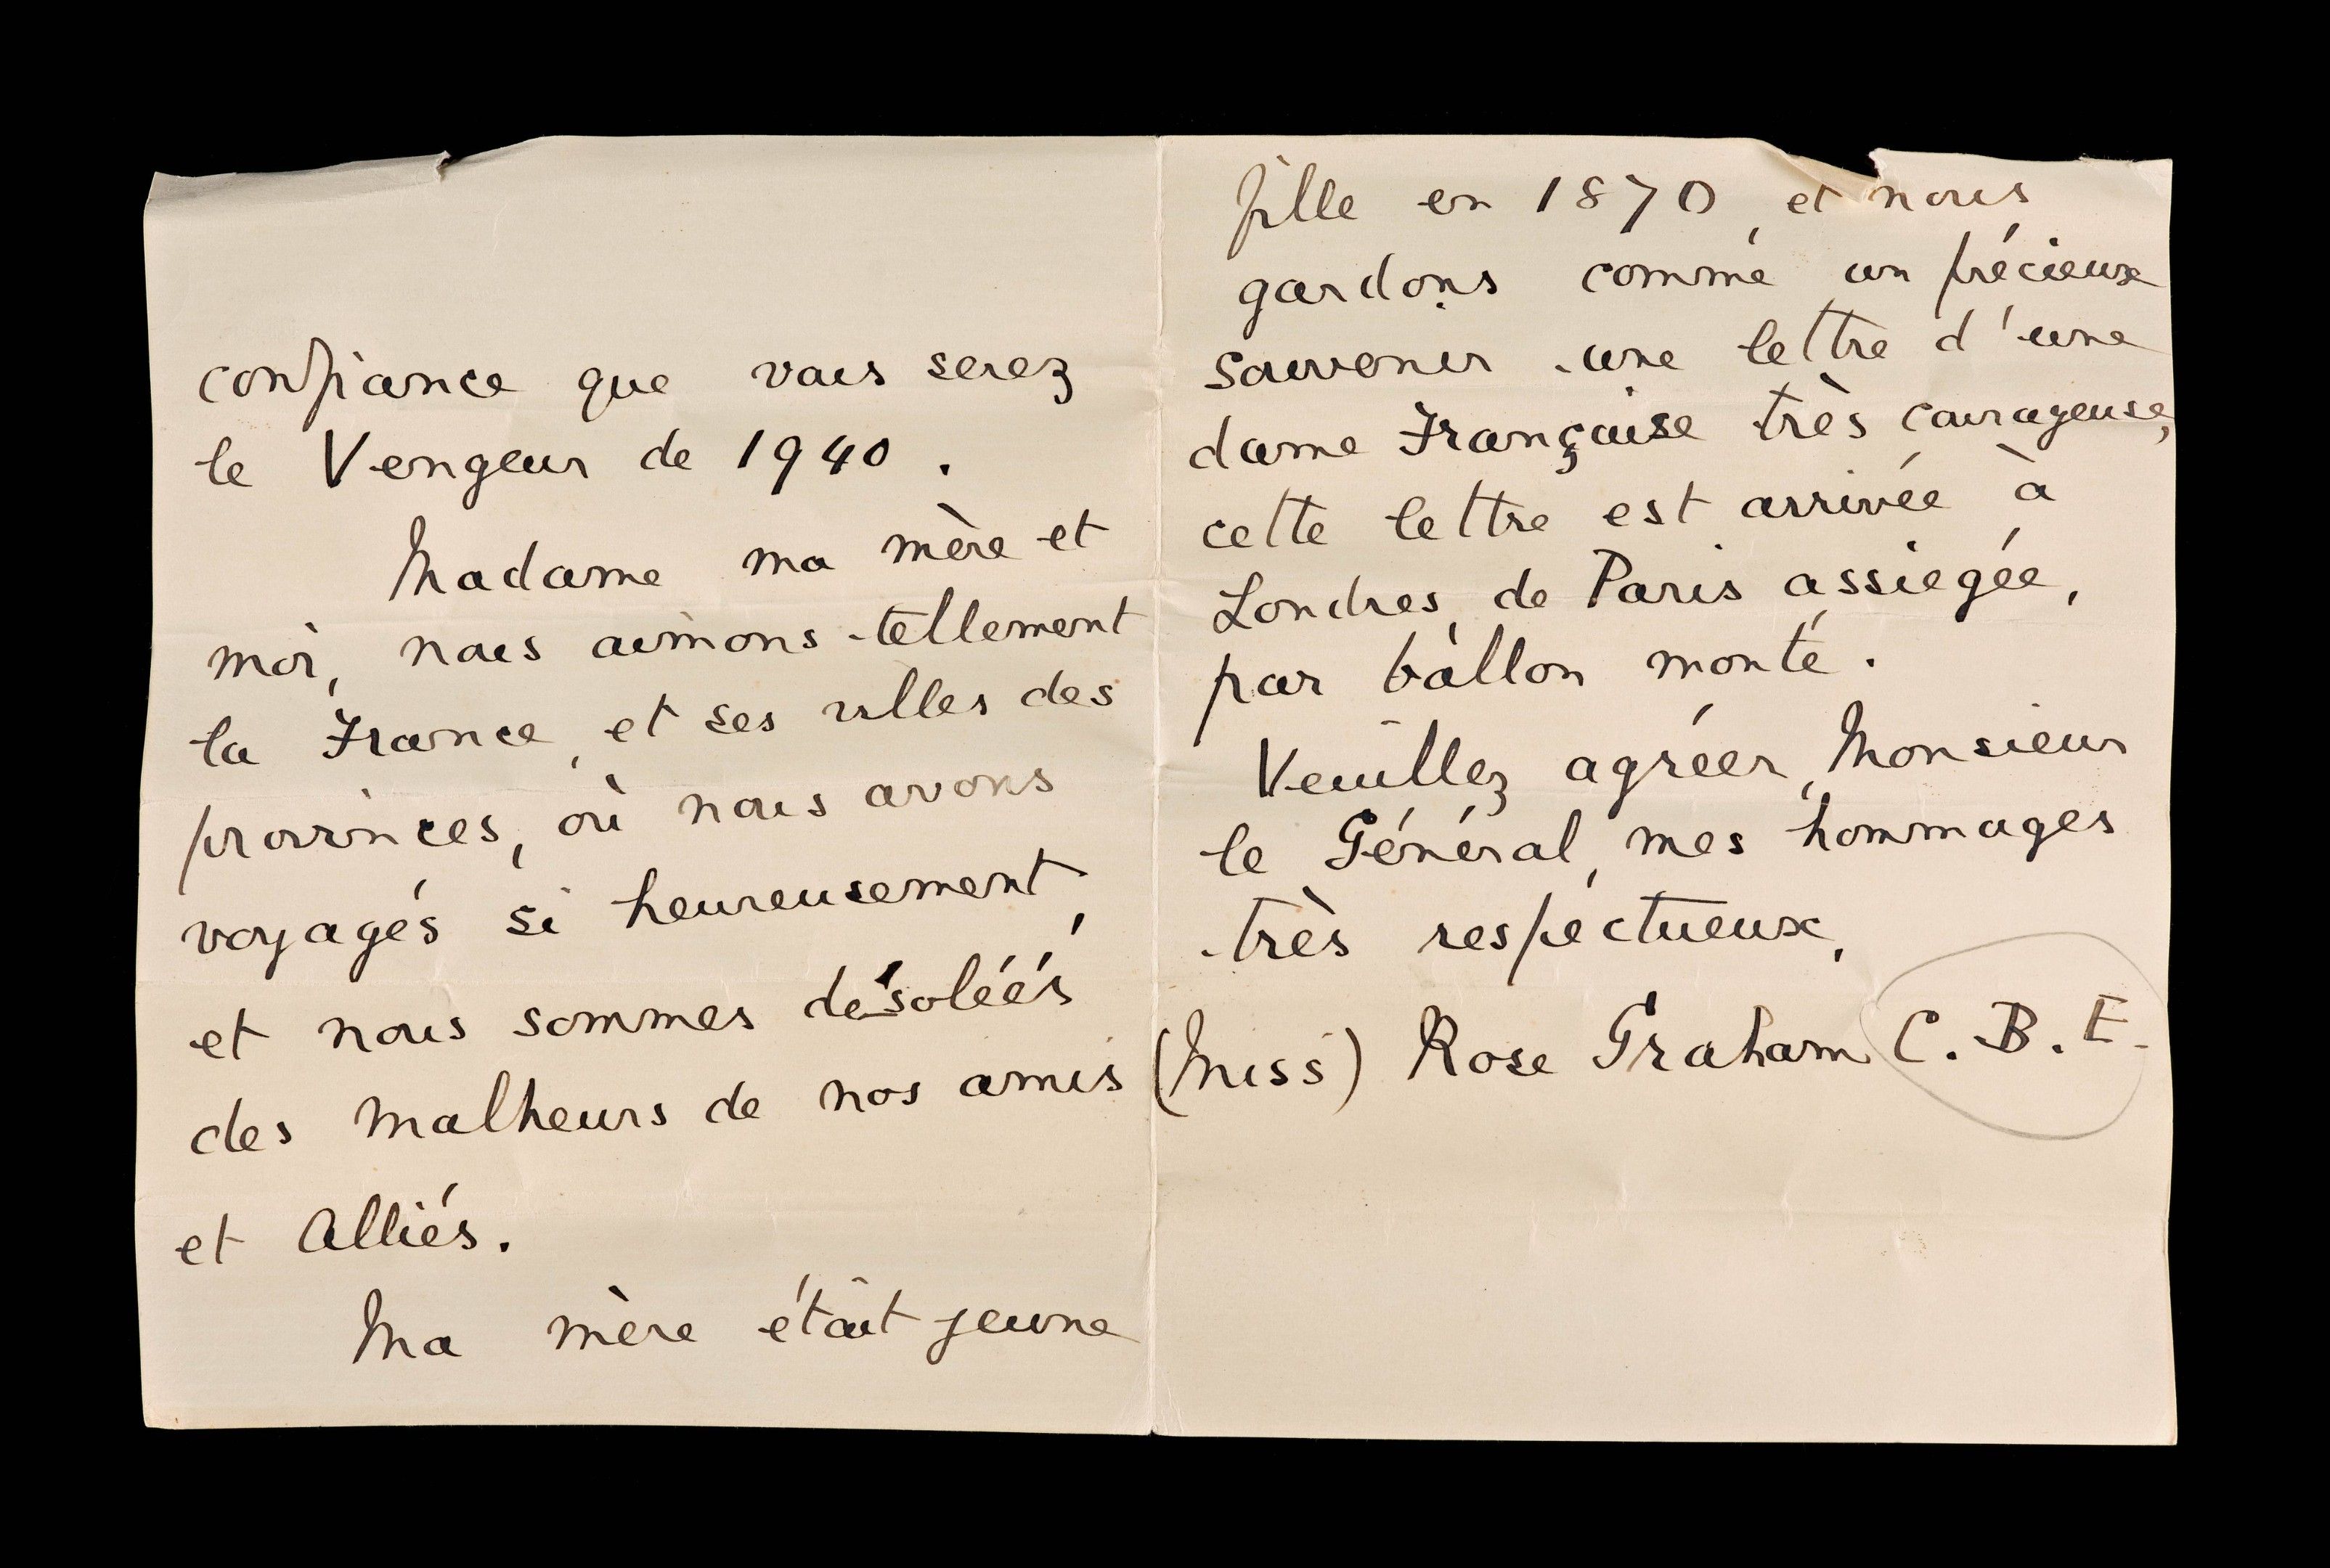 confiance que vous serez
le Vengeur de 1940.
Madame ma mère et
moi, nous aimons tellement
la France, et ses villes des
provinces, où nous avons
voyagés si heureusement,
et nous sommes désolées
des malheurs de nos amis
et Alliés.
Ma mère était jeune
fille en 1870, et nous
gardons comme un précieux
souvenir une lettre d'une
dame Française très courageuse,
cette lettre est arrivée à
Londres, de Paris assiegée,
par ballon monté.
Veuillez agréer, Monsieur
le Général, mes hommages
très respectueux,
(Miss) Rose Graham C.B.E.